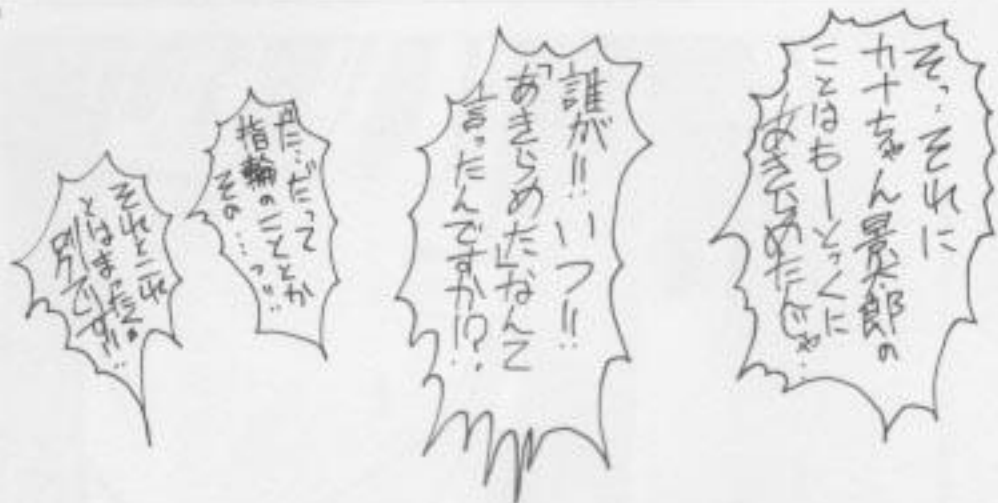 そっ‥それに
カナちゃん景太郎の
ことはもーとっくに
あきらめたんじゃ‥
誰が!!いつ!!
「あきらめた」なんて
言ったんですか!?
だ…だって
指輪のこととか
その…っ‥
それとこれ
とはまったく
別です!!